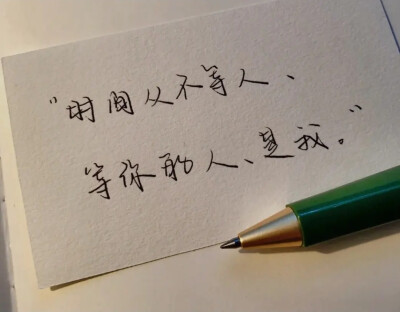 “时间从不等人、
等你的人、是我。”